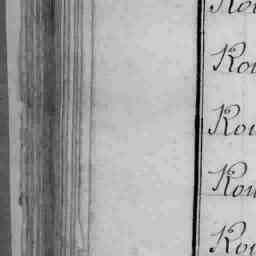 Rou
Rou
Rou
Rou
Rou